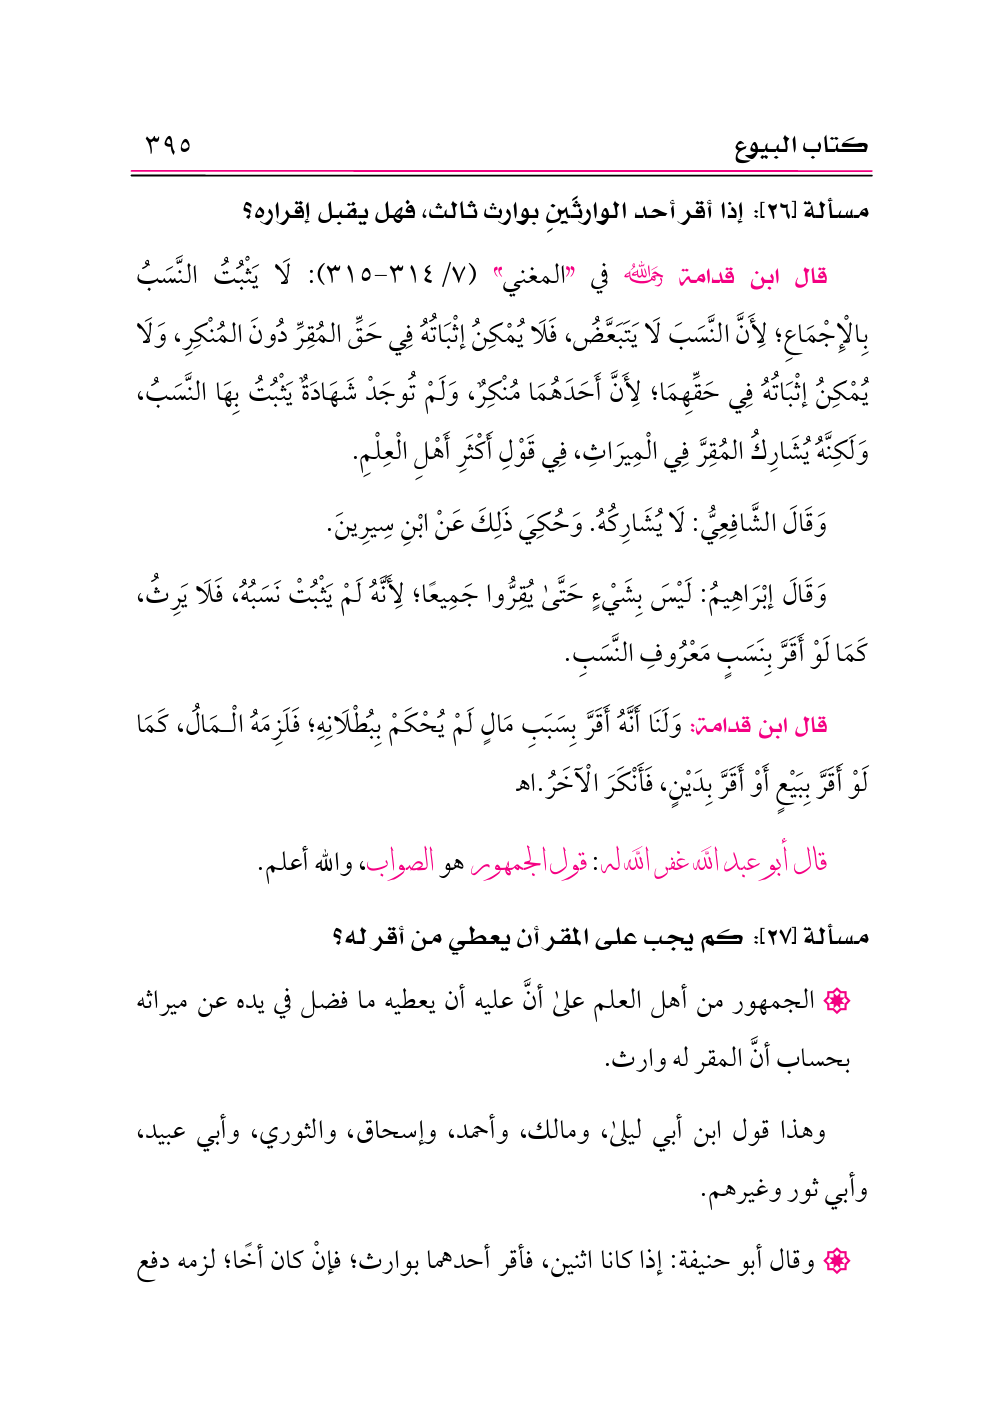 كتاب البيوع ٣٩٥
مسألة [٢٦]: إذا أقر أحد الوارثَينِ بوارث ثالث، فهل يقبل إقراره؟
قال ابن قدامة رحمه الله في "المغني" (٧/ ٣١٤-٣١٥): لَا يَثْبُتُ النَّسَبُ
بِالْإِجْمَاعِ؛ لِأَنَّ النَّسَبَ لَا يَتَبَعَّضُ، فَلَا يُمْكِنُ إثْبَاتُهُ فِي حَقِّ المُقِرِّ دُونَ المُنْكِرِ، وَلَا
يُمْكِنُ إثْبَاتُهُ فِي حَقِّهِمَا؛ لِأَنَّ أَحَدَهُمَا مُنْكِرٌ، وَلَمْ تُوجَدْ شَهَادَةٌ يَثْبُتُ بِهَا النَّسَبُ،
وَلَكِنَّهُ يُشَارِكُ المُقِرَّ فِي الْمِيرَاثِ، فِي قَوْلِ أَكْثَرِ أَهْلِ الْعِلْمِ.
وَقَالَ الشَّافِعِيُّ: لَا يُشَارِكُهُ. وَحُكِيَ ذَلِكَ عَنْ ابْنِ سِيرِينَ.
وَقَالَ إبْرَاهِيمُ: لَيْسَ بِشَيْءٍ حَتَّىٰ يُقِرُّوا جَمِيعًا؛ لِأَنَّهُ لَمْ يَثْبُتْ نَسَبُهُ، فَلَا يَرِثُ،
كَمَا لَوْ أَقَرَّ بِنَسَبٍ مَعْرُوفِ النَّسَبِ.
قال ابن قدامة: وَلَنَا أَنَّهُ أَقَرَّ بِسَبَبِ مَالٍ لَمْ يُحْكَمْ بِبُطْلَانِهِ؛ فَلَزِمَهُ الْـمَالُ، كَمَا
لَوْ أَقَرَّ بِبَيْعٍ أَوْ أَقَرَّ بِدَيْنٍ، فَأَنْكَرَ الْآخَرُ.اهـ
قال أبو عبد الله غفر الله له: قول الجمهور هو الصواب، والله أعلم.
مسألة [٢٧]: كم يجب على المقر أن يعطي من أقر له؟
الجمهور من أهل العلم علىٰ أنَّ عليه أن يعطيه ما فضل في يده عن ميراثه
بحساب أنَّ المقر له وارث.
وهذا قول ابن أبي ليلىٰ، ومالك، وأحمد، وإسحاق، والثوري، وأبي عبيد،
وأبي ثور وغيرهم.
وقال أبو حنيفة: إذا كانا اثنين، فأقر أحدهما بوارث؛ فإنْ كان أخًا؛ لزمه دفع